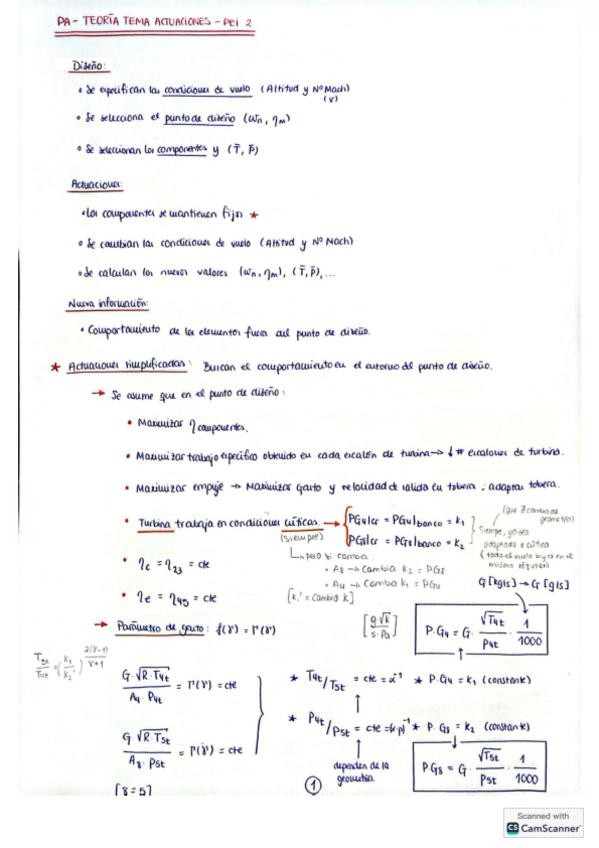 PA - TEORÍA TEMA ACTUACIONES - PEI 2
Diseño:
• Se especifican las condiciones de vuelo (Altitud y Nº Mach)
(v)
• Se selecciona el punto de diseño (ωn, ηm)
• Se seleccionan los componentes y (T̄, P̄)
Actuaciones:
• Los componentes se mantienen fijos *
• Se cambian las condiciones de vuelo (Altitud y Nº Mach)
• Se calculan los nuevos valores (ωn, ηm), (T̄, P̄), ...
Nueva información:
• Comportamiento de los elementos fuera del punto de diseño.
* Actuaciones simplificadas: Buscan el comportamiento en el entorno del punto de diseño.
→ Se asume que en el punto de diseño:
• Maximizar η componentes.
• Maximizar trabajo específico obtenido en cada escalón de turbina → ↓ # escalones de turbina.
• Maximizar empuje → Maximizar gasto y velocidad de salida en tobera: adaptar tobera.
• Turbina trabaja en condiciones críticas. → PG4|cr = PG4|banco = k1
(siempre) PG8|cr = PG8|banco = k2
↳ pero si cambia:
• A8 → cambia k2 = PG8
• A4 → cambia k1 = PG4
[k' = cambia k]
• ηc = η23 = cte
• ηe = η45 = cte
G [kg/s] → G [g/s]
→ Parámetro de gasto: f(γ) = Γ(γ)
[g√K / s·Pa]
P.G4 = G · √T4t / P4t · 1/1000
T5t/T4t = (k1/k2')^(2(γ-1)/(γ+1))
G·√(R·T4t) / (A4·P4t) = Γ(γ) = cte
* T4t/T5t = cte = α⁻¹ * P.G4 = k1 (constante)
* P4t/P5t = cte = * P.G8 = k2 (constante)
G √(R·T5t) / (A8·P5t) = Γ(γ) = cte
dependen de la geometría
P.G8 = G · √T5t / P5t · 1/1000
[8=5]
1
Scanned with
CS CamScanner